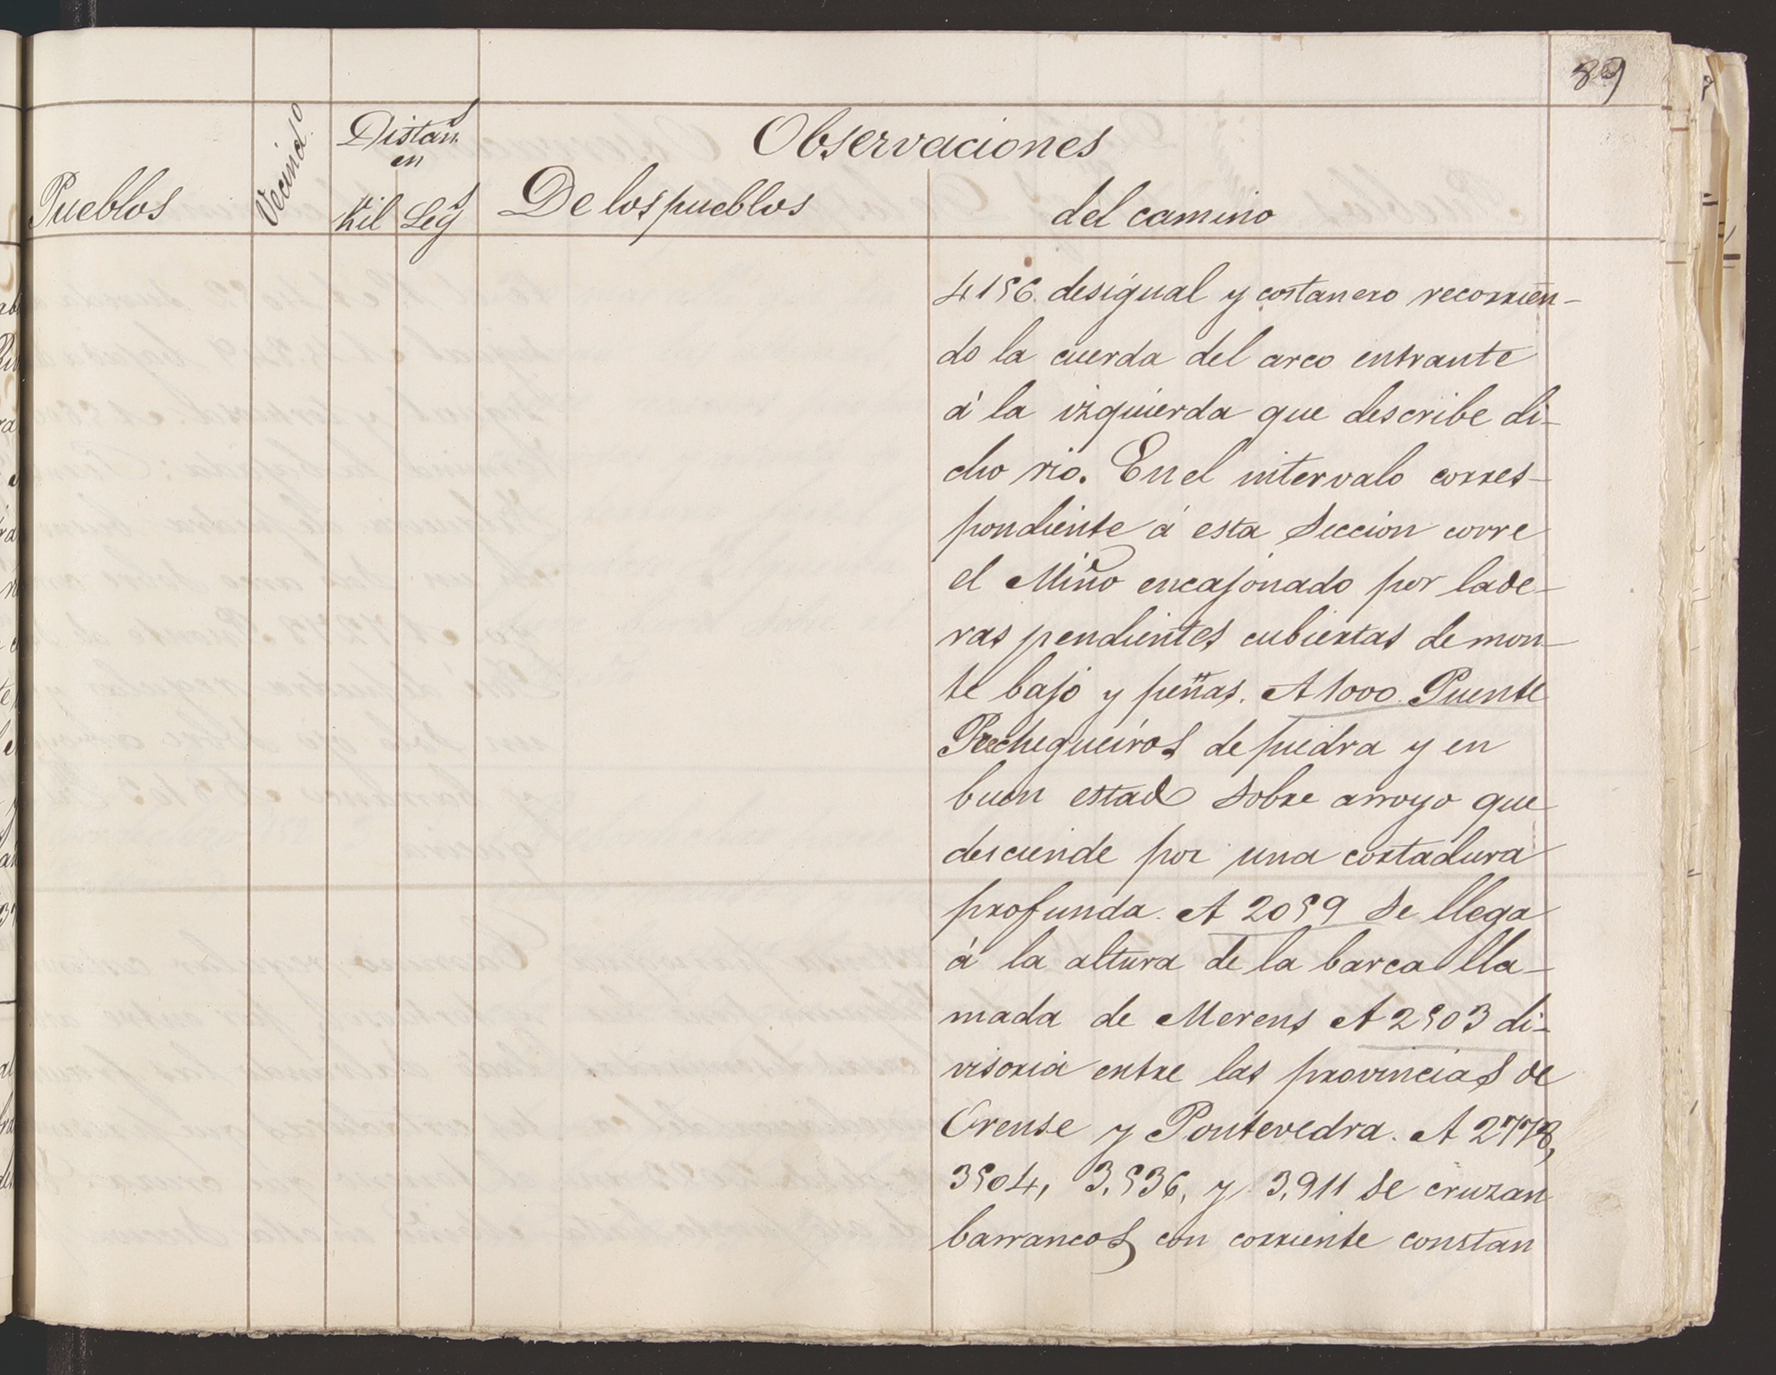 89
Observaciones
Pueblos Vecind.º Distan.s en Kil Leg.s De los pueblos del camino
4156. desigual y costanero recorrien-
do la cuerda del arco entrante
á la izquierda que describe di-
cho rio. En el intervalo corres-
pondiente á esta Seccion corre
el Miño encajonado por lade-
ras pendientes cubiertas de mon-
te bajo y peñas. A 1000. Puente
Prechegueiros de piedra y en
buen estado sobre arroyo que
desciende por una cortadura
profunda. A 2059 se llega
á la altura de la barca lla-
mada de Merens A 2503 di-
visoria entre las provincias de
Orense y Pontevedra. A 2778,
3504, 3,536, y 3,911 se cruzan
barrancos con corriente constan